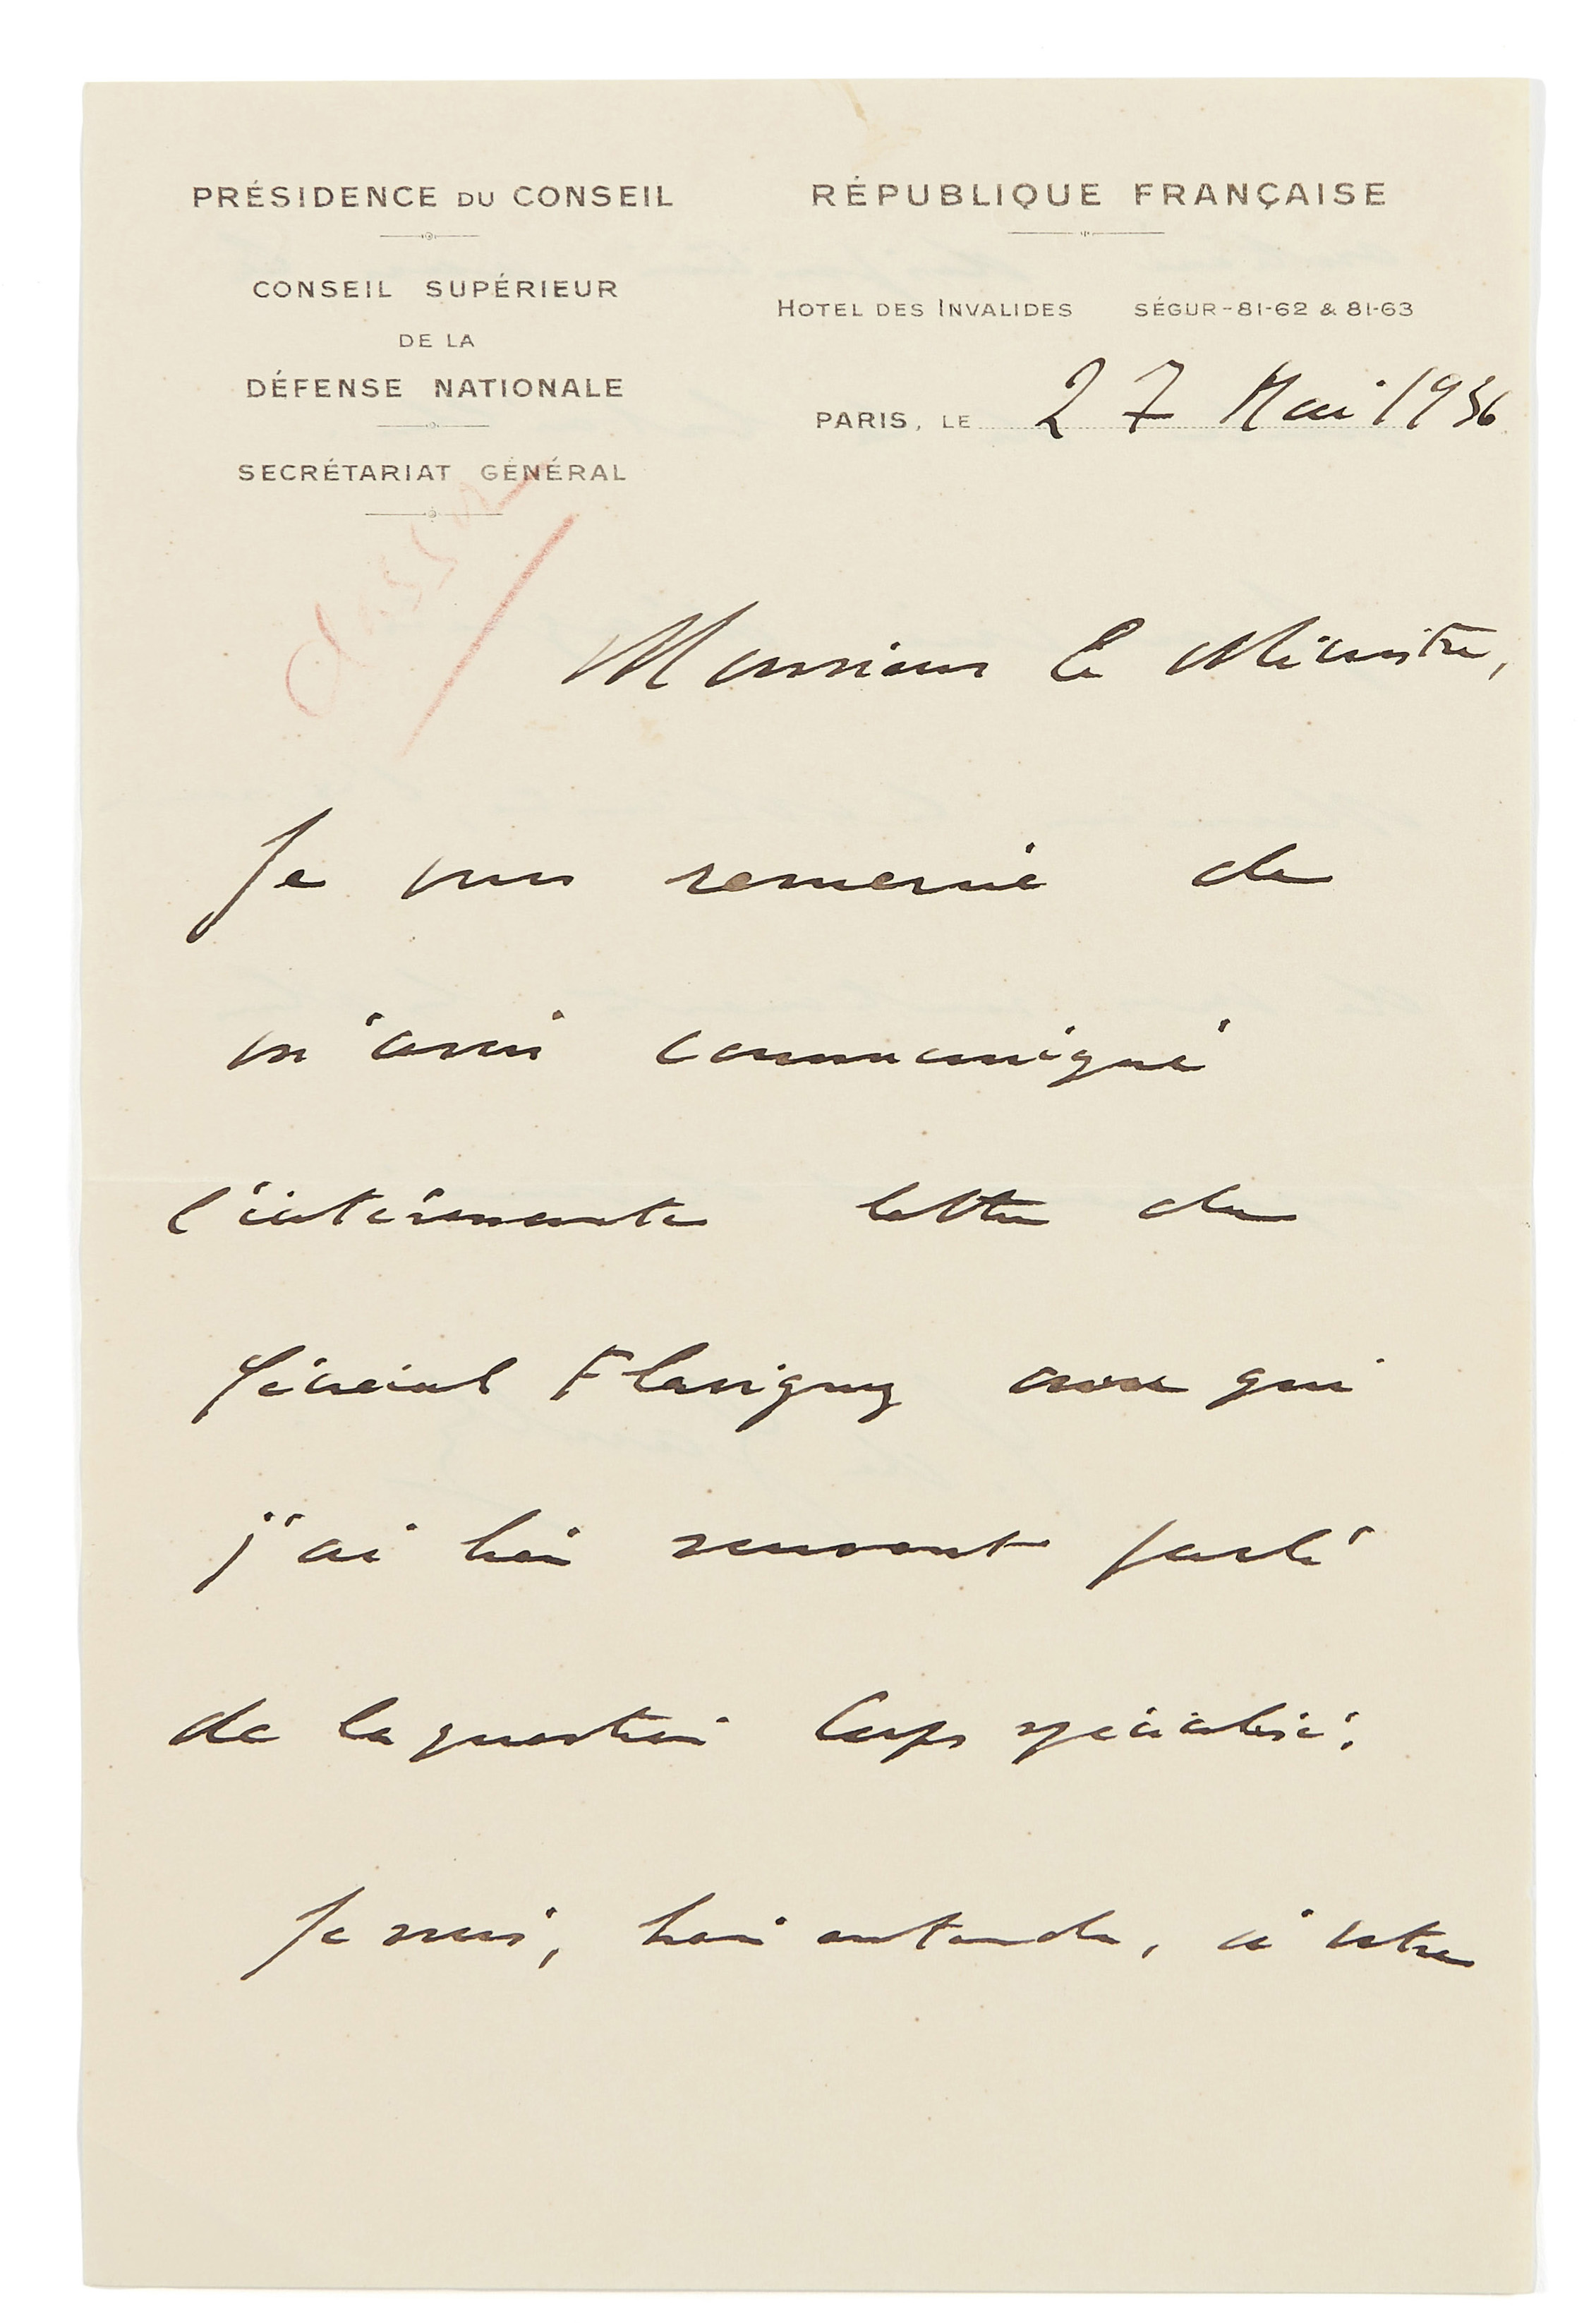 PRÉSIDENCE DU CONSEIL
CONSEIL SUPÉRIEUR
DE LA
DÉFENSE NATIONALE
SECRÉTARIAT GÉNÉRAL
RÉPUBLIQUE FRANÇAISE
HOTEL DES INVALIDES SÉGUR-81-62 & 81-63
PARIS, LE 27 Mai 1936
classer
Monsieur le Ministre,
Je vous remercie de
m'avoir communiqué
l'intéressante lettre du
Général Flavigny avec qui
j'ai bien souvent parlé
de la question Corps spécialisé.
Je suis, bien entendu, à votre